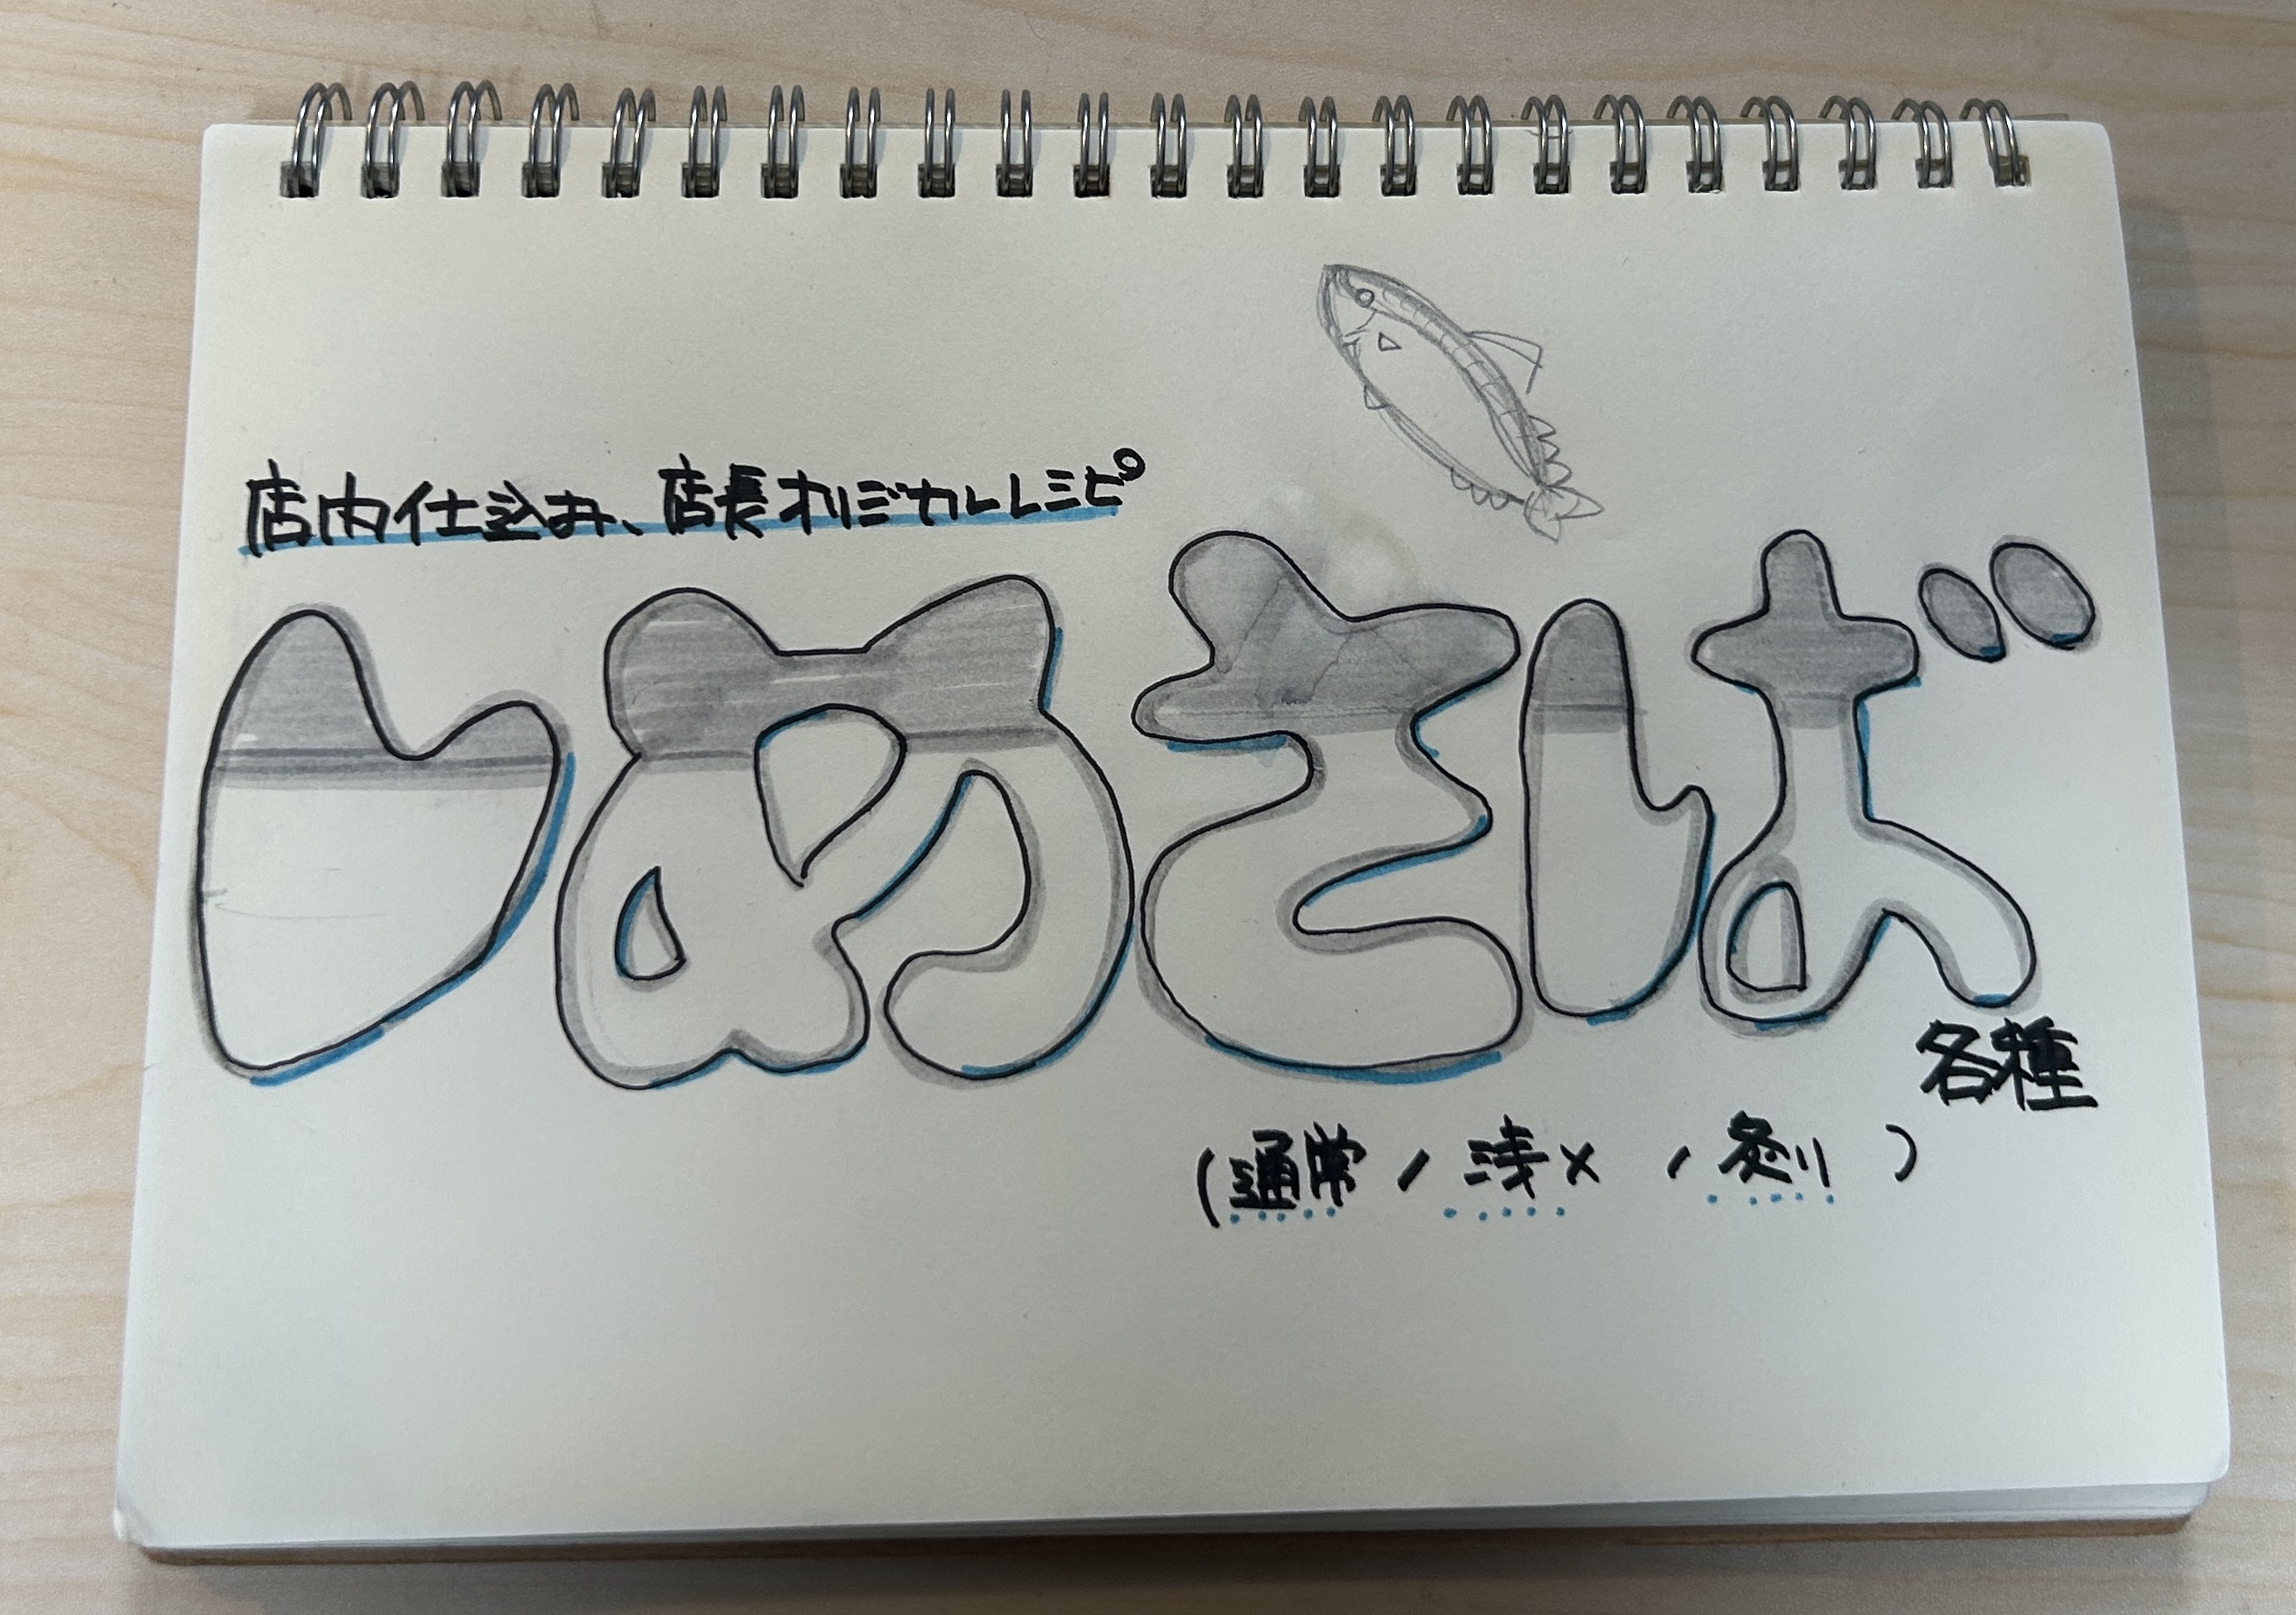 店内仕込み、店長オリジナルレシピ
しめさば
各種
(通常/浅〆/炙り)